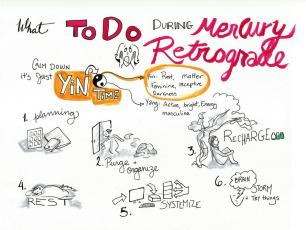 What To Do During Mercury
Retrograde
Calm Down
it's Just
Yin Time
Yin: Rest, matter
Feminine, receptive
Darkness
Yang: Active, bright, Energy
masculine
1. planning
2. Purge +
organize
3.
RECHARGE
4.
REST
5.
SYSTEMIZE
6. BRAIN
STORM
+ Try things